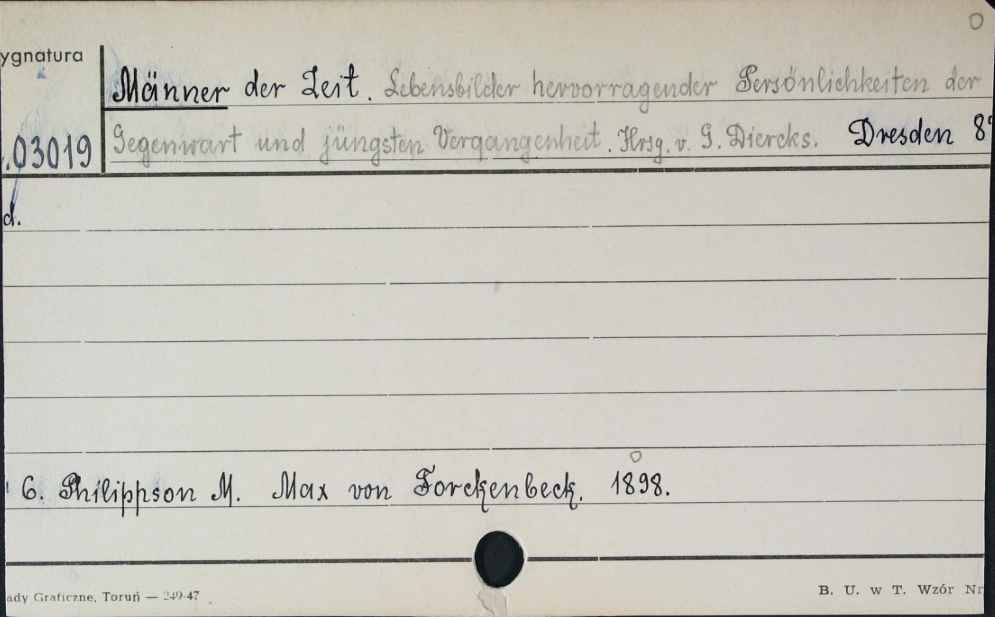 ygnatura
Männer der Zeit. Lebensbilder hervorragender Persönlichkeiten der
.03019 Gegenwart und jüngsten Vergangenheit. Hrsg. v. G. Diercks. Dresden 8°
d.
6. Philippson M. Max von Forckenbeck. 1898.
ady Graficzne, Toruń — 249-47
B. U. w T. Wzór Nr